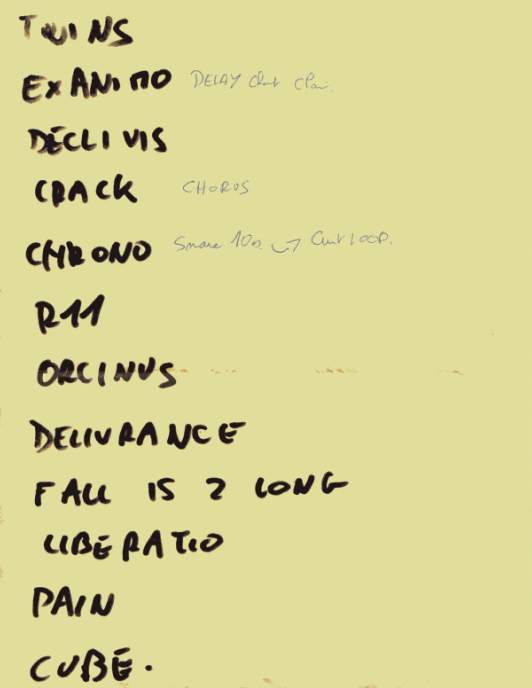 TWINS
EXANIMO DELAY Chant Clair.
DECLIVIS
CRACK CHORUS
CHRONO Snare 10s. → Cut LOOP.
R11
ORCINUS
DELIVRANCE
FALL IS 2 LONG
LIBERATIO
PAIN
CUBE.